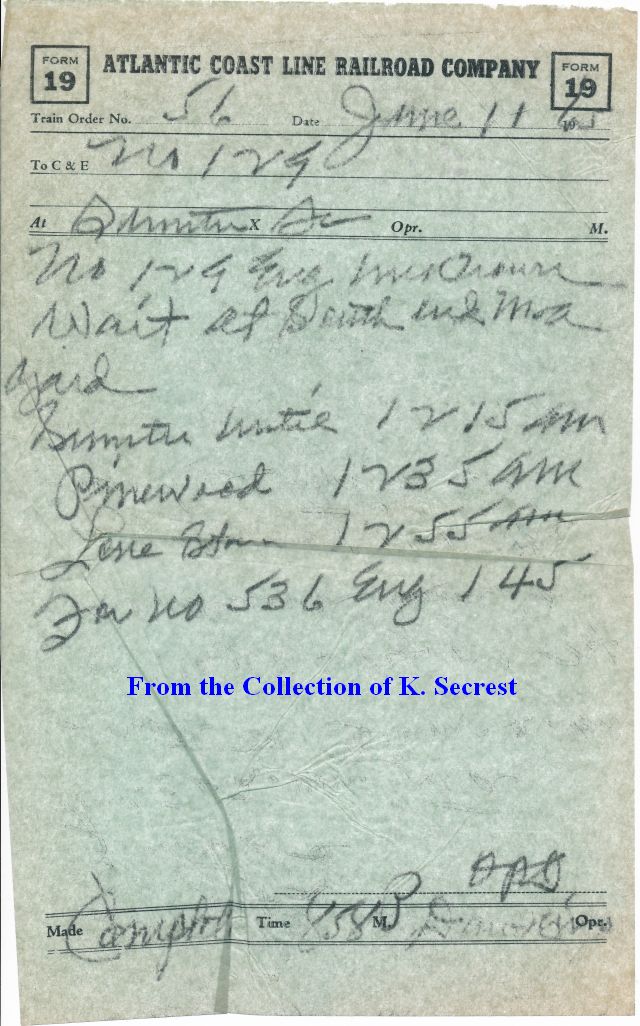 FORM 19 ATLANTIC COAST LINE RAILROAD COMPANY FORM 19
Train Order No. 56 Date June 11 19
To C & E No 129
At Sumter X SC Opr. M.
No 129 Eng
Wait at South end
yard
Sumter until 12 15 am
Pinewood 12 35 am
Lone Star 12 55 am
For no 536 Eng 145
From the Collection of K. Secrest
Made Compton Time 58 M. Opr.